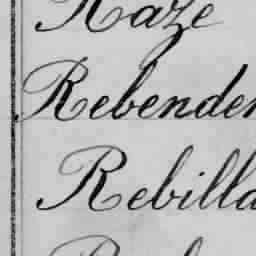 Raze
Rebenden
Rebilla